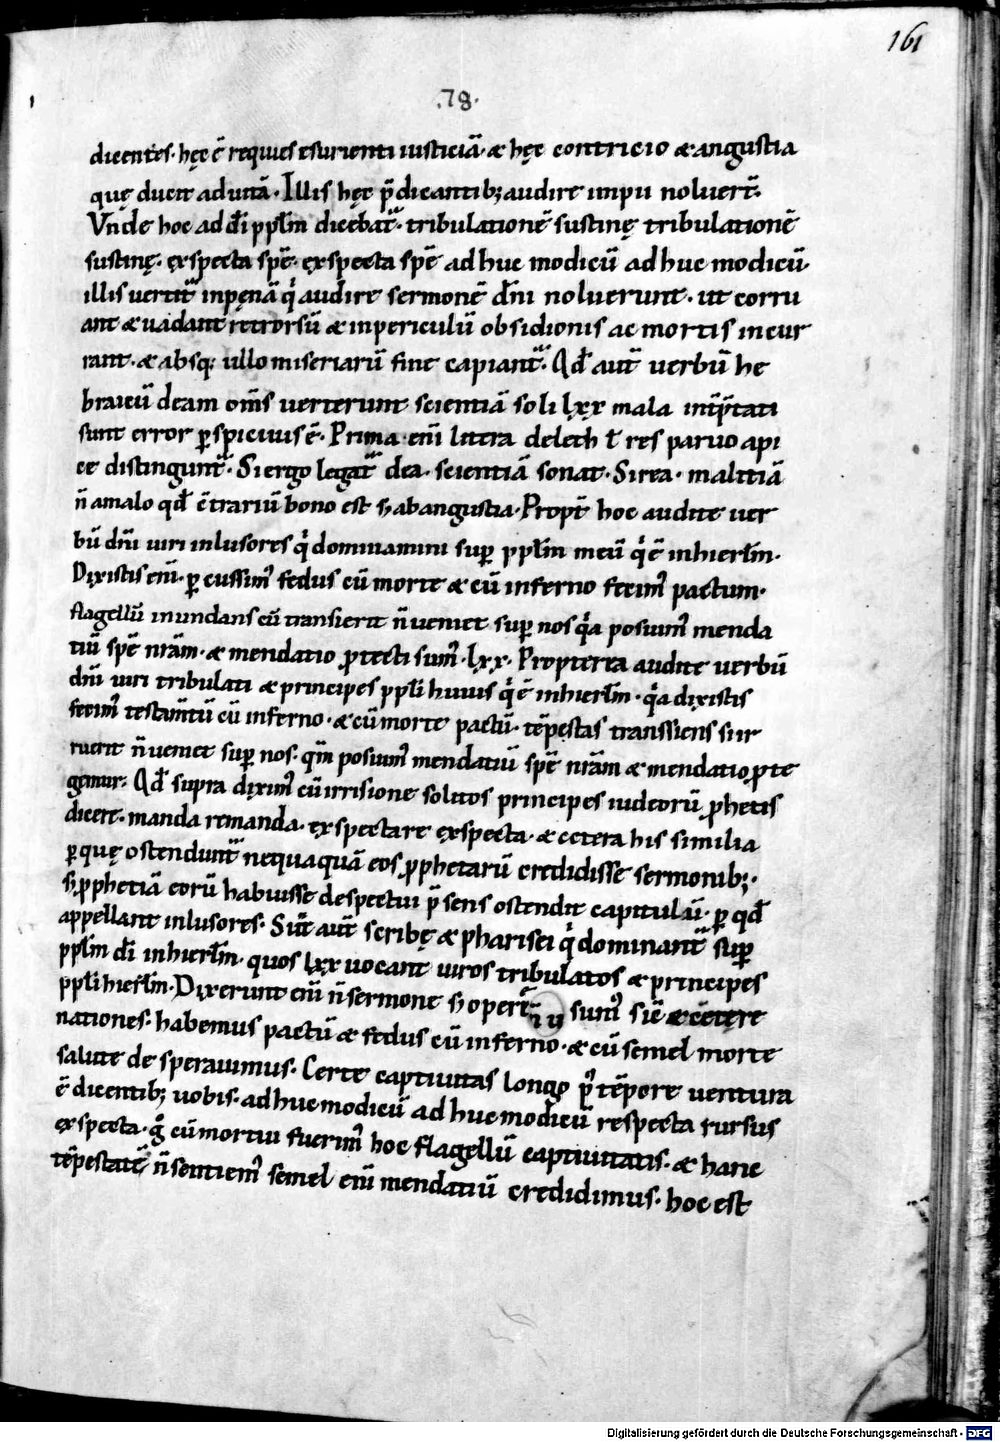 161
.78.
dicentes· hęc ē requies esurienti iusticiā· & hęc contricio & angustia
quę ducit ad uitā· Illis hęc p̄dicantib; audire impii noluer̄t·
Vnde hoc ad dī pplm̄ dicebat᷑· tribulationē sustinę tribulationē
sustinę· exspecta spē· exspecta spē adhuc modicū adhuc modicū·
illis uertit᷑ in pęnā qͥ audire sermonē dn̄i noluerunt· ut corru
ant & uadant retrorsū & in periculū obsidionis ac mortis incur
rant· & absq; ullo miseriarū fine capiant᷑· Qd̄ aut̄ uerbū he
braicū deam om̄s uerterunt scientiā soli lxx mala int̄p̄tati
sunt error ꝑspicuus ē· Prima eni̅ littera delech ł res paruo api
ce distingunt᷑· Si ergo legat᷑ dea· scientiā sonat· Si rea· malitiā
n̄ a malo qd̄ c̄trariū bono est sꝫ ab angustia· Propt̄ hoc audite uer
bū dn̄i uiri inlusores qͥ dominamini suꝑ pplm̄ meū qͥ ē in hierłm·
Dixistis eni̅· ꝑcussimꝰ fedus cū morte & cū inferno fecimꝰ pactum·
flagellū inundans cū transierit n̄ ueniet suꝑ nos qͥa posuimꝰ menda
tiū spē nrā̅m· & mendatio ꝓtecti sumꝰ· lxx· Propterea audite uerbū
dn̄i uiri tribulati & principes ppłi huius qͥ ē in hierłm· qͥa dixistis
fecimꝰ testam̄tū cū inferno· & cū morte pactū· tēpestas transsiens sur
ruerit n̄ ueniet suꝑ nos· qm̄ posuimꝰ mendatiū spē nrā̅m & mendatio ꝓte
gimur· Qd̄ supra diximꝰ cū irrisione solitos principes iudeorū ꝓphetis
dicere· manda remanda· exspectare exspecta· & cetera his similia
ꝑ quę ostendunt᷑ nequaquā eos ꝓphetarū credidisse sermonib;·
sꝫ ꝓphetiā eorū habuisse despectui p̄sens ostendit capitulū· ꝑ qd̄
appellant inlusores· Sūt aut̄ scribę & pharisei qͥ dominant᷑ suꝑ
pplm̄ dī in hierłm· quos lxx uocant uiros tribulatos & principes
ppłi hierłm· Dixerunt eni̅ n̄ sermone sꝫ oper̄ sumꝰ sic̄ & cetere
nationes· habemus pactū & fedus cū inferno· & cū semel morte
salute desperauimus· Certe captiuitas longo pꝰ tēpore uentura
ē dicentib; uobis· adhuc modicū adhuc modicū respecta rursus
exspecta· g̊ cū mortui fuerimꝰ hoc flagellū captiuitatis· & hanc
tēpestatē n̄ sentiemꝰ semel eni̅ mendatiū credidimus· hoc est
Digitalisierung gefördert durch die Deutsche Forschungsgemeinschaft - DFG